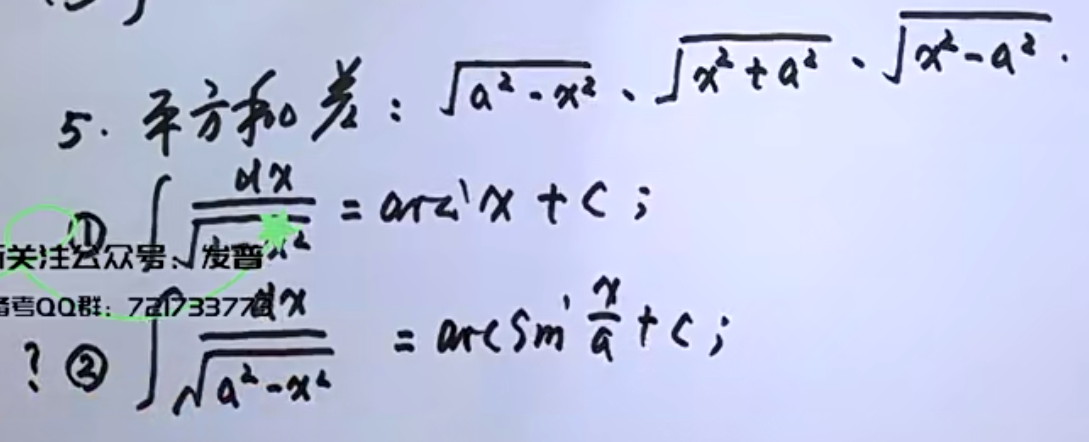 5. 平方和差: √(a²-x²)、√(x²+a²)、√(x²-a²).
① ∫ dx/√(x²) = arc x + C;
关注公众号、发普
QQ群: 721733772
? ② ∫ dx/√(a²-x²) = arcsin x/a + C;